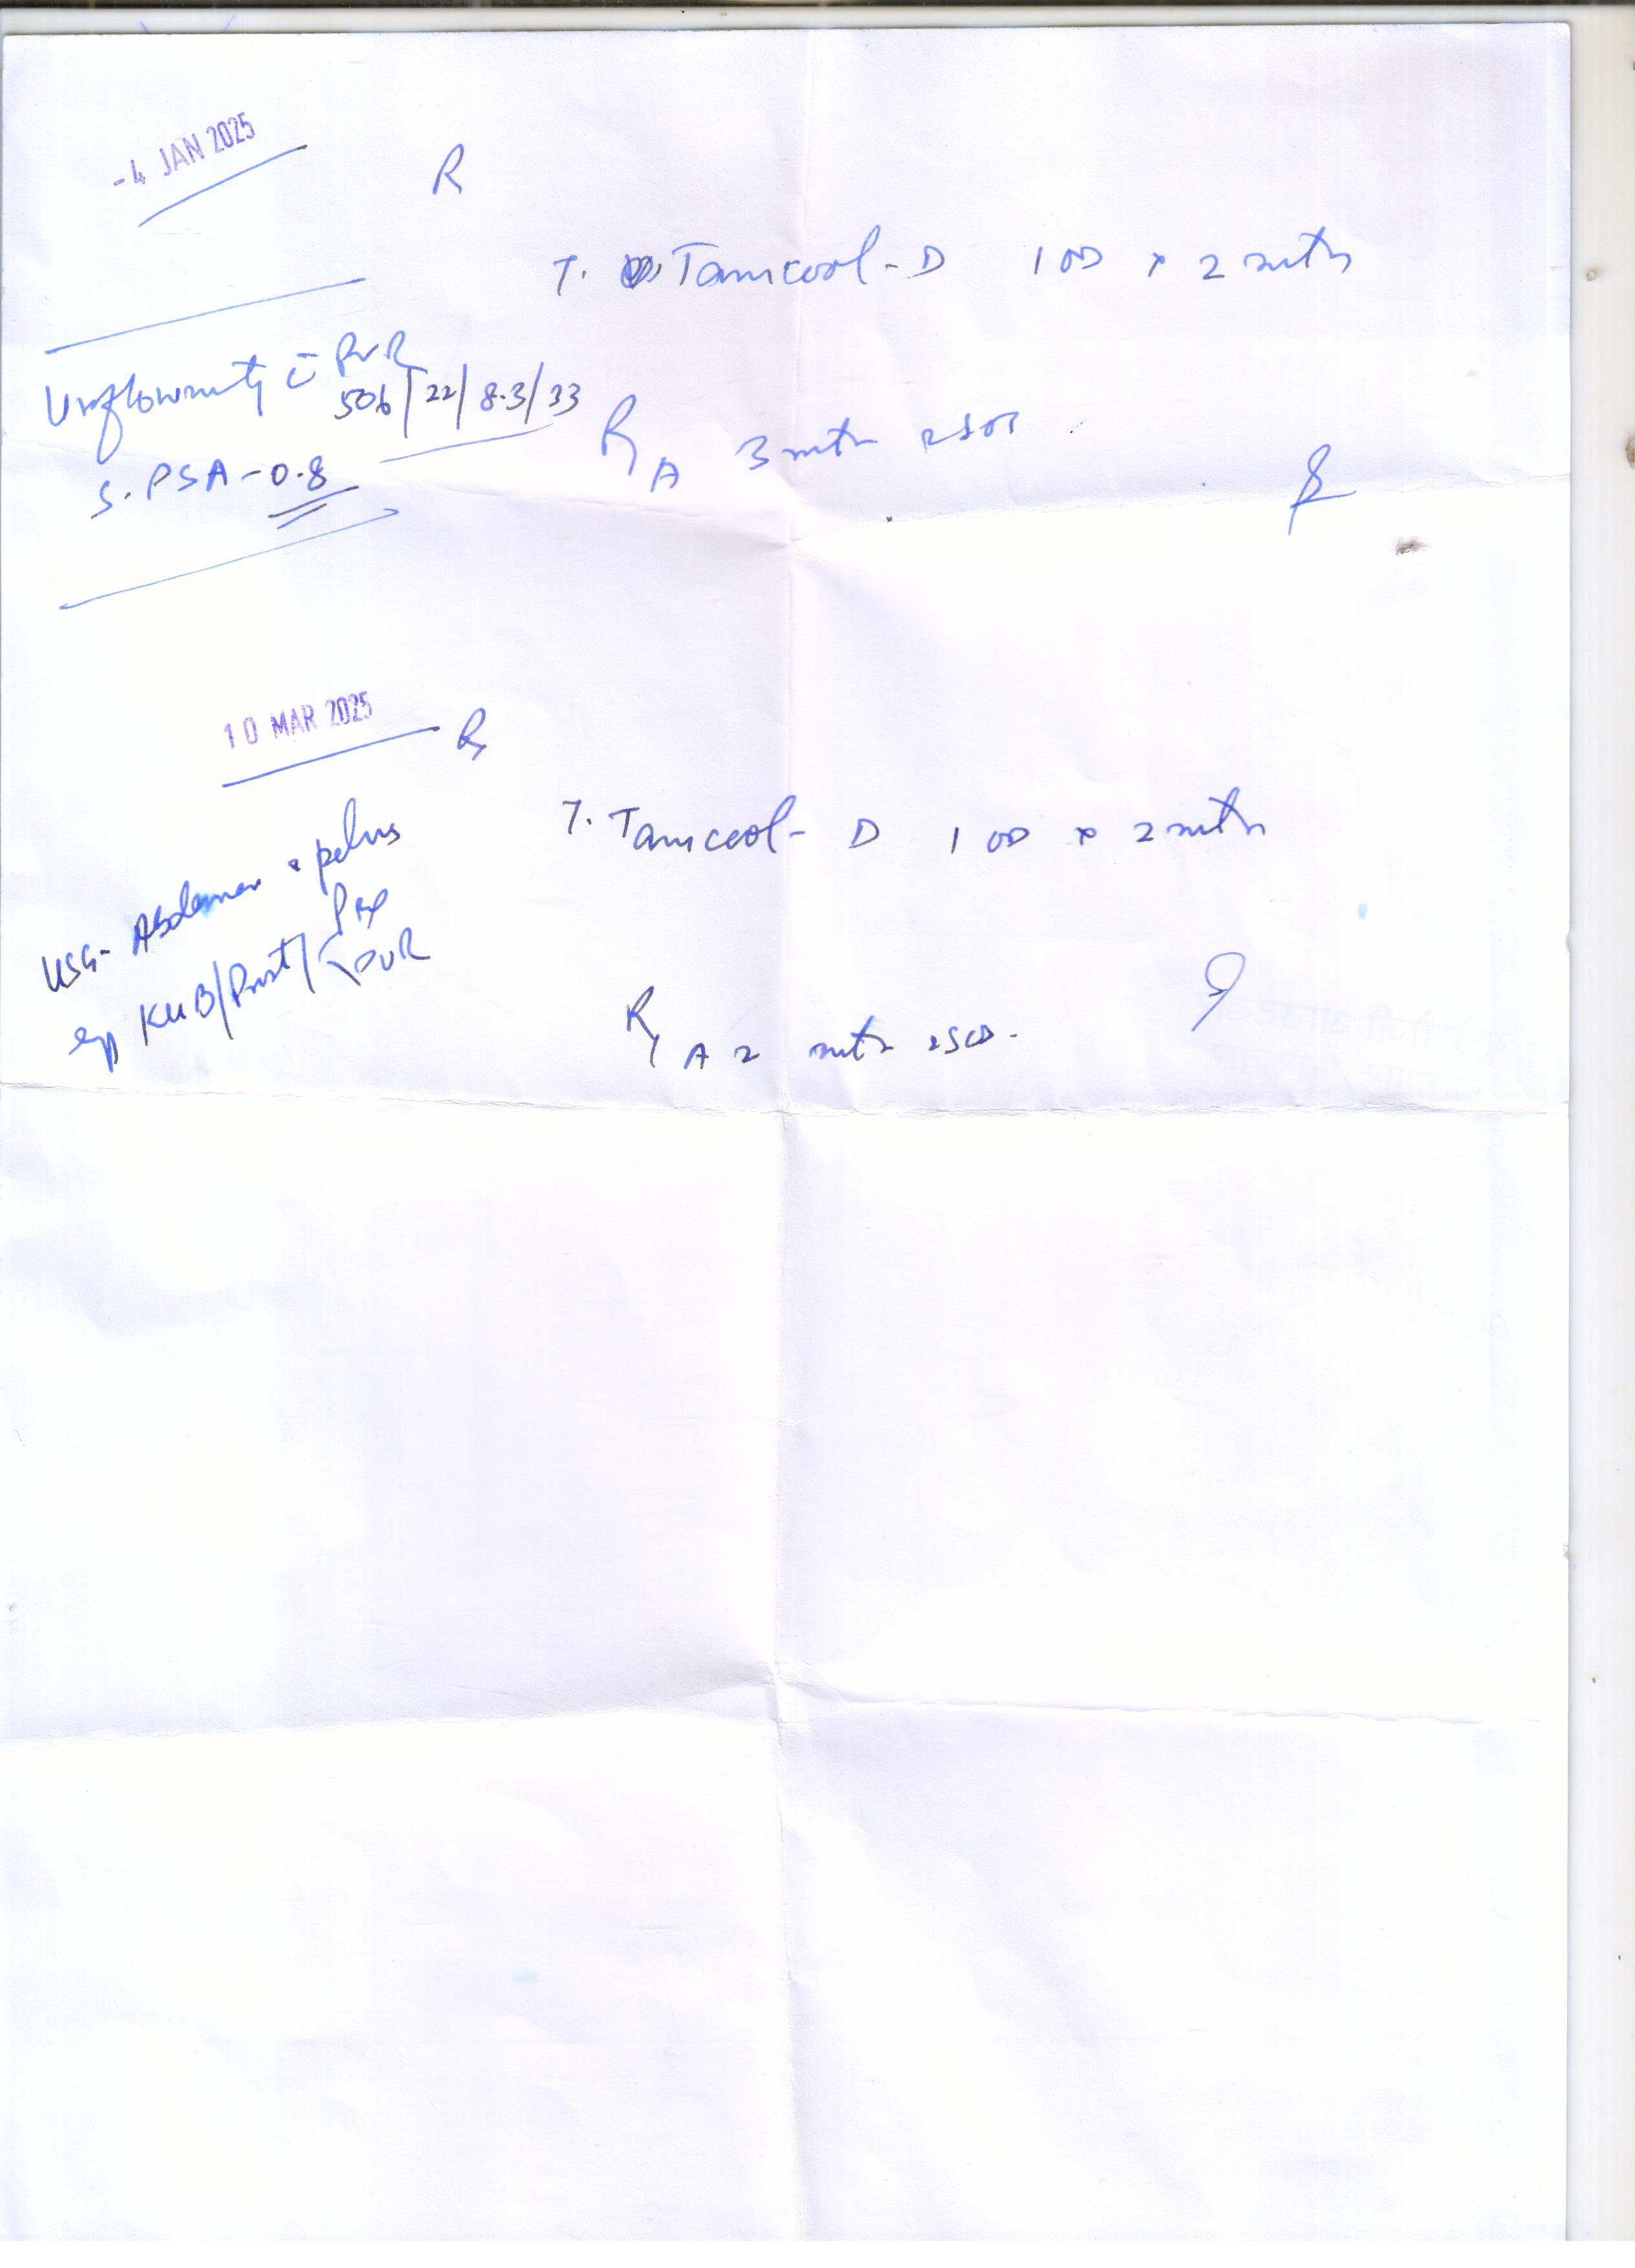 -4 JAN 2025
R
T. Tamcool-D 1 OD x 2 mth
Uroflowmetry c̄ PVR
506/22/8.3/33
S. PSA - 0.8
R/A 3 mth
10 MAR 2025
R
T. Tamcool-D 1 OD x 2 mth
USG- Abdomen pelvis
KUB/Prost/
PVR
R/A 2 mth